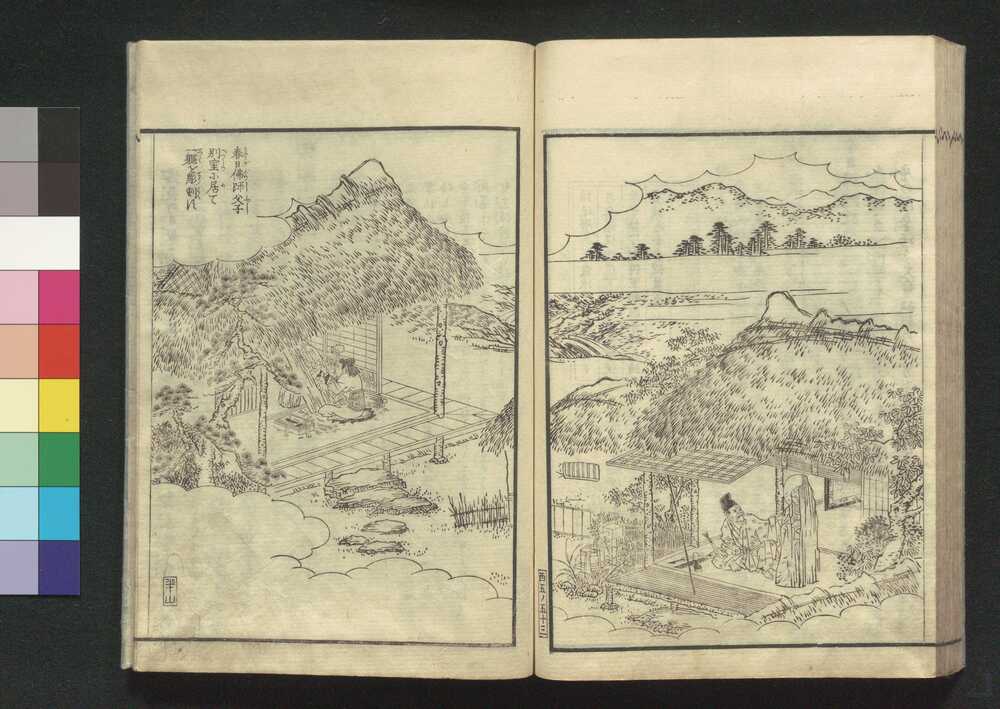 春日佛師父子
別室に居て
一軀を彫刻す
半山
西五ノ五十三